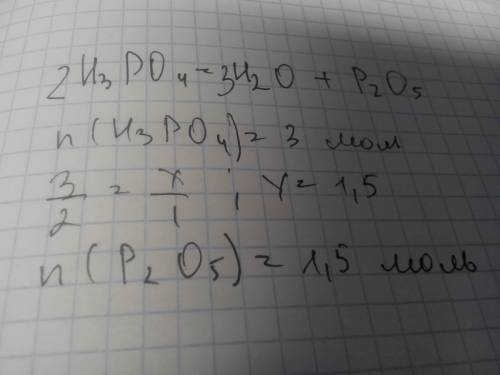 2H₃PO₄ = 3H₂O + P₂O₅
n(H₃PO₄) = 3 мол
3/2 = x/1 ; x = 1,5
n(P₂O₅) = 1,5 моль